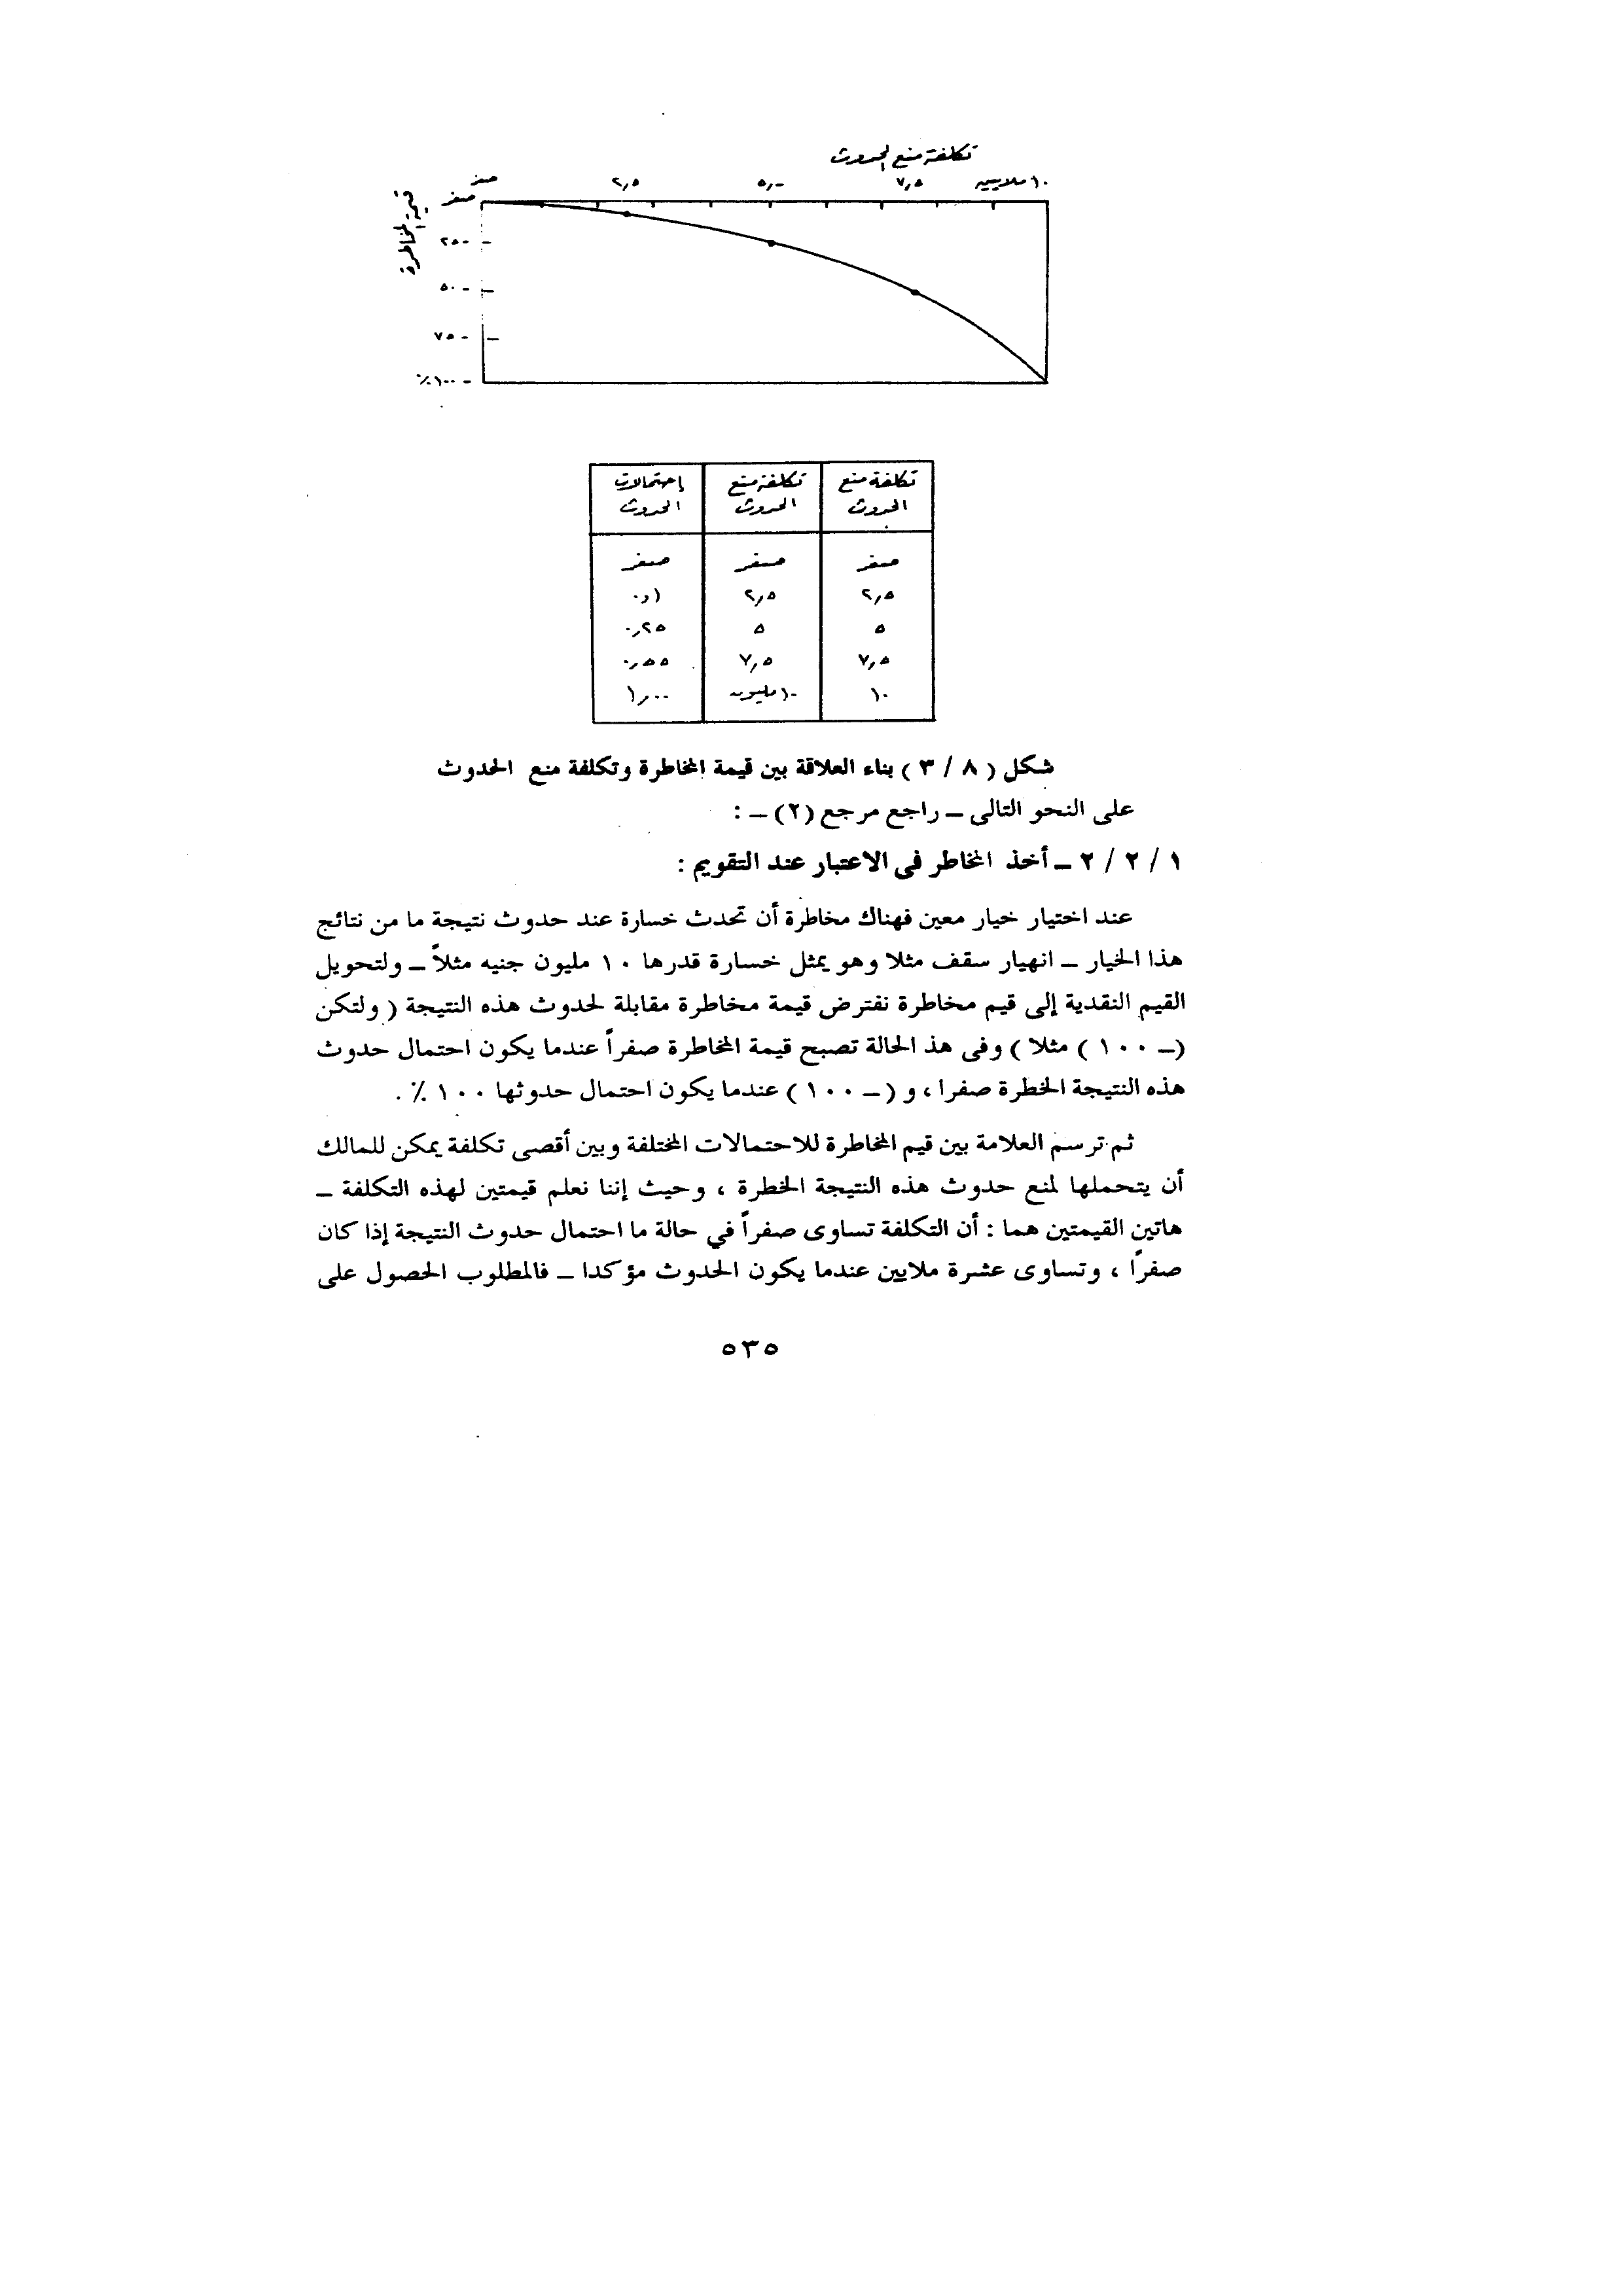 تكلفة منع الحدوث
صفر ٢,٥ ٥,٠ ٧,٥ ١٠ ملايين
قيمة المخاطرة
صفر
٢٥٠ -
٥٠٠ -
٧٥٠ -
٪١٠٠ -
تكلفة منع تكلفة منع إحتمالات
الحدوث الحدوث الحدوث
صفر صفر صفر
٢,٥ ٢,٥ ٠,١
٥ ٥ ٠,٢٥
٧,٥ ٧,٥ ٠,٥٥
١٠ ١٠ مليون ١,٠٠
شكل ( ٨ / ٣ ) بناء العلاقة بين قيمة المخاطرة وتكلفة منع الحدوث
على النحو التالى ــ راجع مرجع (٢) ــ :
١ / ٢ / ٢ ــ أخذ المخاطر فى الاعتبار عند التقويم :
عند اختيار خيار معين فهناك مخاطرة أن تحدث خسارة عند حدوث نتيجة ما من نتائج
هذا الخيار ــ انهيار سقف مثلا وهو يمثل خسارة قدرها ١٠ مليون جنيه مثلاً ــ ولتحويل
القيم النقدية إلى قيم مخاطرة نفترض قيمة مخاطرة مقابلة لحدوث هذه النتيجة ( ولتكن
(ــ ١٠٠ ) مثلا ) وفى هذ الحالة تصبح قيمة المخاطرة صفراً عندما يكون احتمال حدوث
هذه النتيجة الخطرة صفرا ، و (ــ ١٠٠ ) عندما يكون احتمال حدوثها ١٠٠ ٪ .
ثم ترسم العلامة بين قيم المخاطرة للاحتمالات المختلفة وبين أقصى تكلفة يمكن للمالك
أن يتحملها لمنع حدوث هذه النتيجة الخطرة ، وحيث إننا نعلم قيمتين لهذه التكلفة ــ
هاتين القيمتين هما : أن التكلفة تساوى صفراً في حالة ما احتمال حدوث النتيجة إذا كان
صفراً ، وتساوى عشرة ملايين عندما يكون الحدوث مؤكدا ــ فالمطلوب الحصول على
٥٣٥